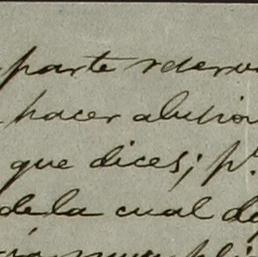 parte reserv
hacer alusion
que dices; p.
de la cual de